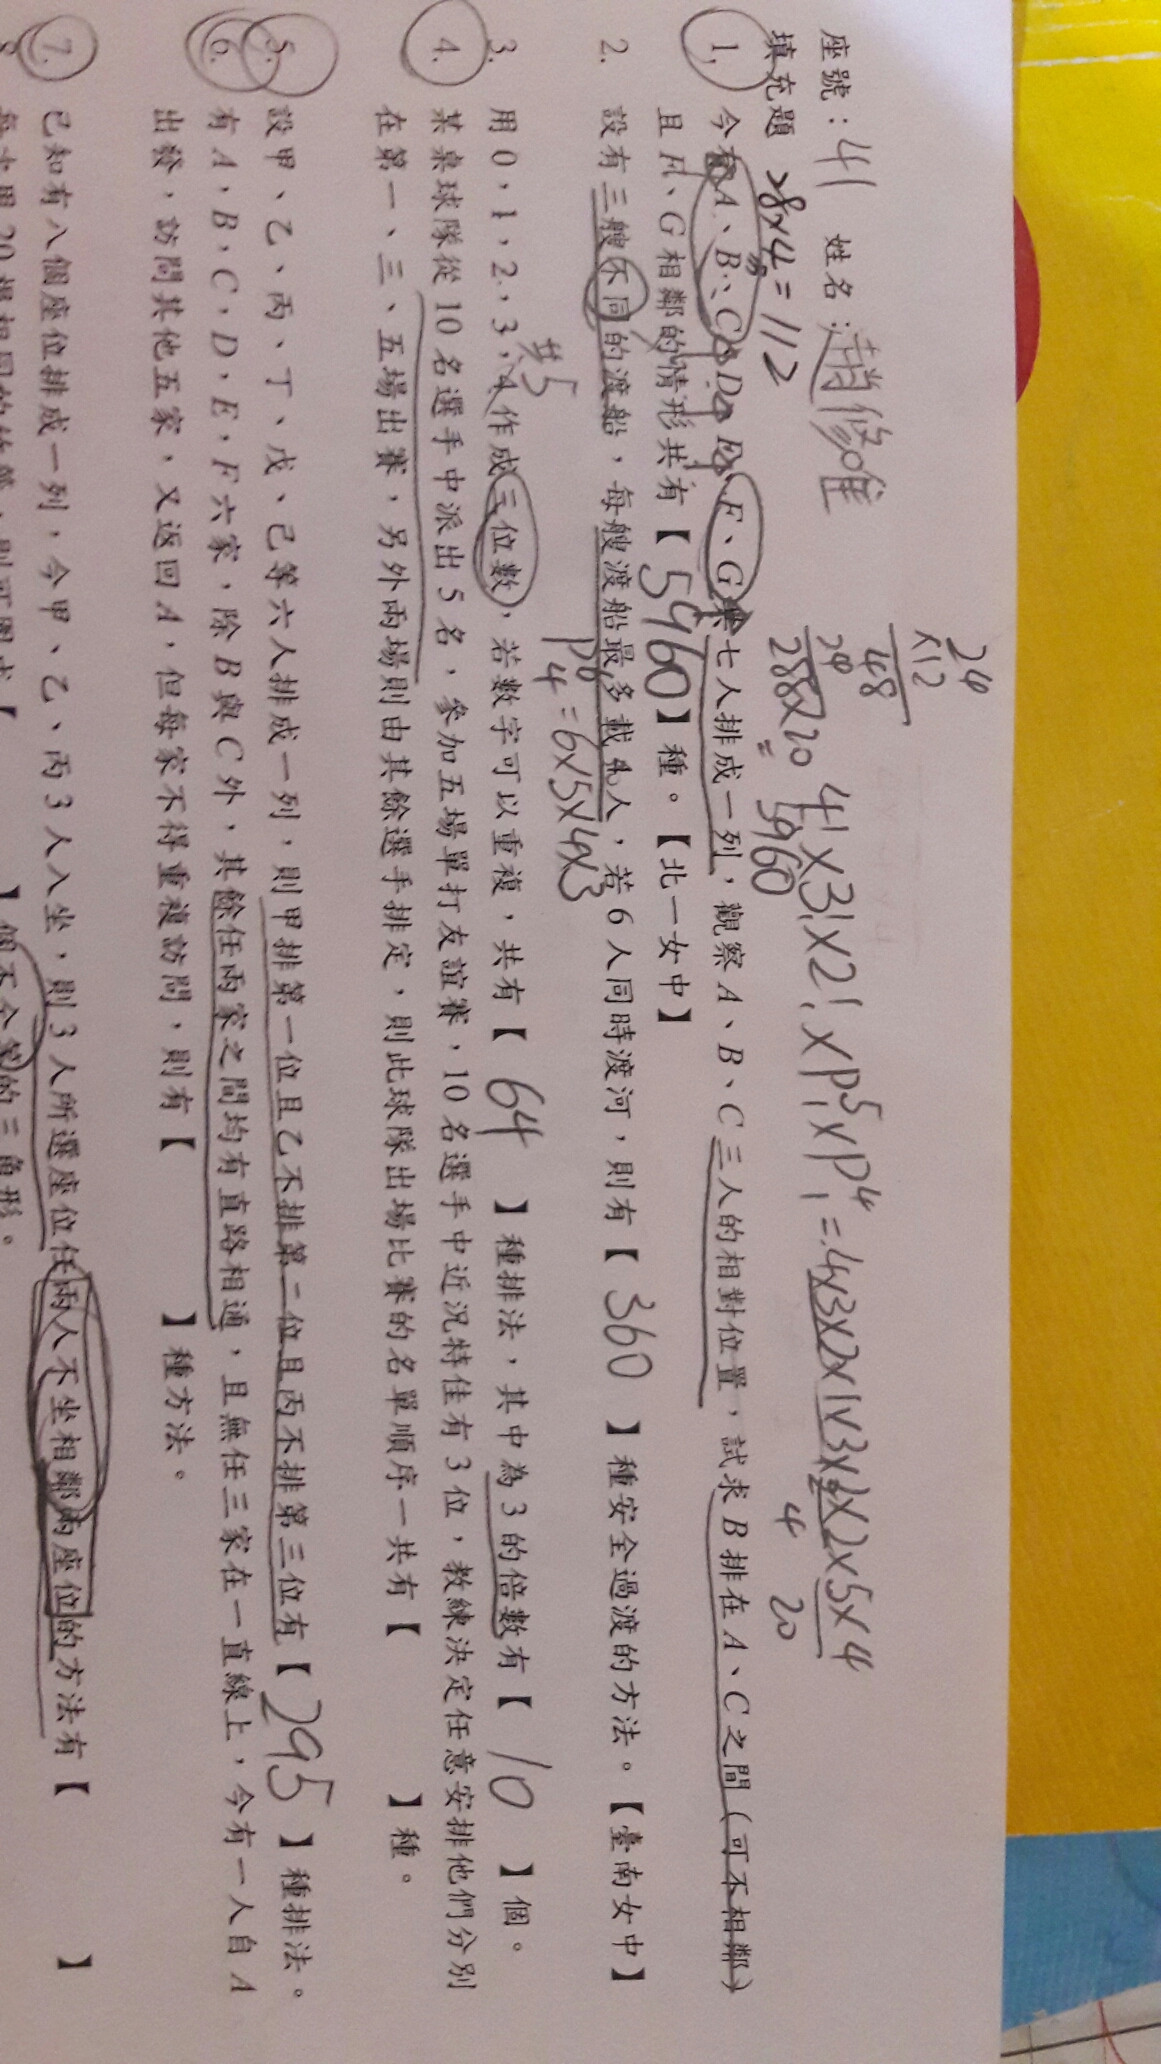 24
×12
48
24
288×20
= 5960
4!×3!×2!×P⁵₁×P⁴₁=4×3×2×1×3×2×2×5×4
4 20
座號:41 姓名:
填充題 28×4=112
1. 今有 A、B、C、D、E、F、G 七人排成一列,觀察 A、B、C 三人的相對位置,試求 B 排在 A、C 之間(可不相鄰)
且 F、G 相鄰的情形共有【5960】種。【北一女中】
2. 設有三艘不同的渡船,每艘渡船最多載 4 人,若 6 人同時渡河,則有【 360 】種安全過渡的方法。【臺南女中】
P⁶₄=6×5×4×3
共5
3. 用 0,1,2,3,4 作成三位數,若數字可以重複,共有【 64 】種排法,其中為 3 的倍數有【 10 】個。
4. 某桌球隊從 10 名選手中派出 5 名,參加五場單打友誼賽,10 名選手中近況特佳有 3 位,教練決定任意安排他們分別
在第一、三、五場出賽,另外兩場則由其餘選手排定,則此球隊出場比賽的名單順序一共有【 】種。
5. 設甲、乙、丙、丁、戊、己等六人排成一列,則甲排第一位且乙不排第二位且丙不排第三位有【 295 】種排法。
6. 有 A,B,C,D,E,F 六家,除 B 與 C 外,其餘任兩家之間均有直路相通,且無任三家在一直線上,今有一人自 A
出發,訪問其他五家,又返回 A,但每家不得重複訪問,則有【 】種方法。
7. 已知有八個座位排成一列,今甲、乙、丙 3 人入坐,則 3 人所選座位任兩人不坐相鄰兩座位的方法有【 】
個不全等的三角形。